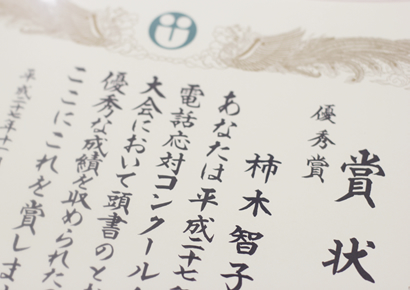 賞状
優秀賞
柿木智子
あなたは平成二十七
電話応対コンクール
大会において頭書のと
優秀な成績を収められた
ここにこれを賞しま
平成二十七年十一